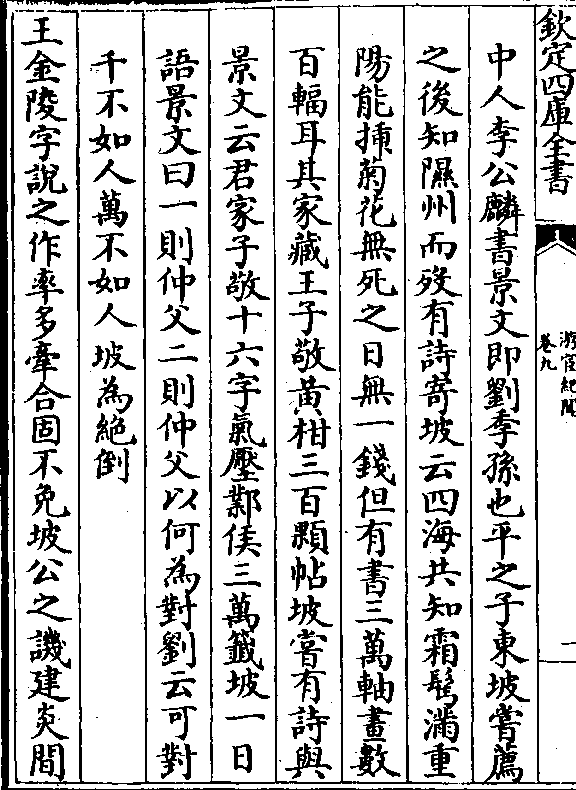 欽定四庫全書
游宦紀聞
卷九
一
中人李公麟書景文即劉季孫也平之子東坡嘗薦
之後知隰州而殁有詩寄坡云四海共知霜鬢滿重
陽能揷菊花無死之日無一錢但有書三萬軸畫數
百幅耳其家藏王子敬黄柑三百顆帖坡嘗有詩與
景文云君家子敬十六字氣壓鄴侯三萬籤坡一日
語景文曰一則仲父二則仲父以何為對劉云可對
千不如人萬不如人坡為絕倒
王金陵字說之作率多牽合固不免坡公之譏建炎間